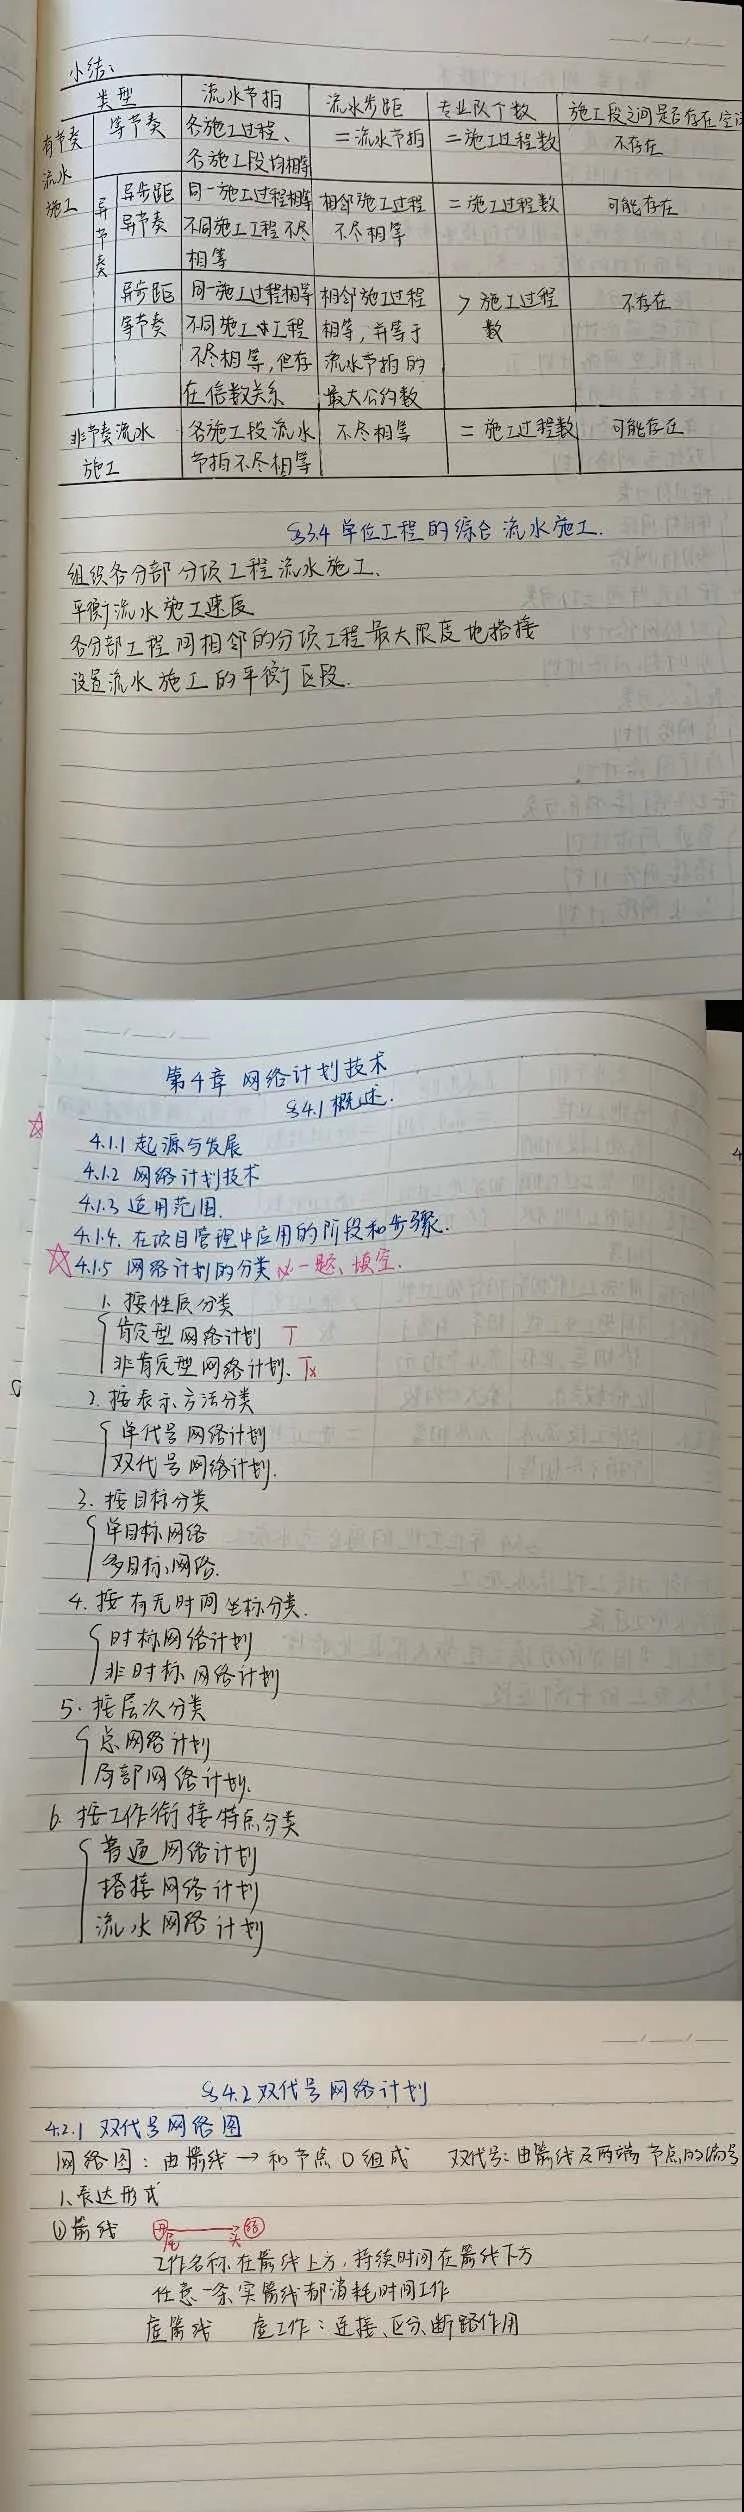 小结、
类型 流水节拍 流水步距 专业队个数 施工段之间是否存在空
有节奏 等节奏 各施工过程、 =流水节拍 =施工过程数 不存在
流水 各施工段均相等
施工 异步距 同一施工过程相等 相邻施工过程 =施工过程数 可能存在
异节奏 异节奏 不同施工工程不尽 不尽相等
相等
异步距 同一施工过程相等 相邻施工过程 >施工过程 不存在
等节奏 不同施工工程 相等,并等于 数
不尽相等,但存 流水节拍的
在倍数关系 最大公约数
非节奏流水 各施工段流水 不尽相等 =施工过程数 可能存在
施工 节拍不尽相等
§3.4 单位工程的综合流水施工.
组织各分部分项工程流水施工、
平衡流水施工速度
各分部工程间相邻的分项工程最大限度地搭接
设置流水施工的平衡区段.
第4章 网络计划技术
§4.1概述.
4.1.1 起源与发展
4.1.2 网络计划技术
4.1.3 适用范围.
4.1.4. 在项目管理中应用的阶段和步骤.
4.1.5 网络计划的分类 一题、填空.
1. 按性质分类
肯定型网络计划 T
非肯定型网络计划. Tx
2. 按表示方法分类
单代号网络计划
双代号网络计划.
3. 按目标分类
单目标网络
多目标网络.
4. 按有无时间坐标分类.
时标网络计划
非时标网络计划
5. 按层次分类
总网络计划
局部网络计划.
6. 按工作衔接特点分类
普通网络计划
搭接网络计划
流水网络计划
§4.2双代号网络计划
4.2.1 双代号网络图
网络图:由箭线→和节点O组成 双代号:由箭线及两端节点的编号
1、表达形式
①箭线 开 尾 头 结
工作名称在箭线上方,持续时间在箭线下方
任意一条实箭线都消耗时间工作
虚箭线 虚工作:连接、区分、断路作用